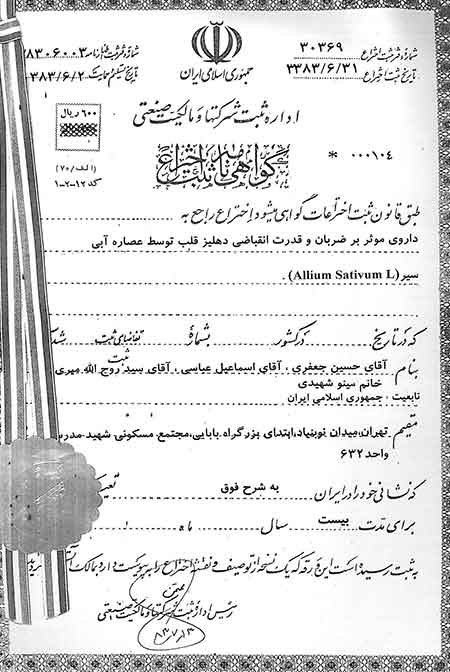 شماره ثبت اختراع ۳۰۳۶۹
تاریخ ثبت اختراع ۳۳۸۳/۶/۳۱
جمهوری اسلامی ایران
شماره ثبت اظهارنامه ۳۸۳۰۶۰۰۳
تاریخ تسلیم ۳۸۳/۶/۲
اداره ثبت شرکتها و مالکیت صنعتی
۶۰۰ ریال
گواهی نامه ثبت اختراع
* ۰۰۰۱۰۴
(الف/۷۰)
کد ۱۲-۲-۱
طبق قانون ثبت اختراعات گواهی میشود اختراع راجع به
داروی موثر بر ضربان و قدرت انقباضی دهلیز قلب توسط عصاره آبی
سیر(Allium Sativum L).
که در تاریخ در کشور بشماره تقاضای ثبت شده
ثبت
بنام آقای حسین جعفری ، آقای اسماعیل عباسی ، آقای سید روح الله میری
خانم مینو شهیدی
تابعیت : جمهوری اسلامی ایران
مقیم تهران،میدان نوبنیاد،ابتدای بزرگراه بابایی،مجتمع مسکونی شهید مدرس
واحد ۶۳۲
که نشانی خود را در ایران به شرح فوق
برای مدت بیست سال ماه
به ثبت رسیده است این ورقه که یک نسخه از توصیف و نقشه اختراع را بپیوست دارد بمالک
رئیس اداره ثبت شرکتها و مالکیت صنعتی
۸۳،۷،۱۳